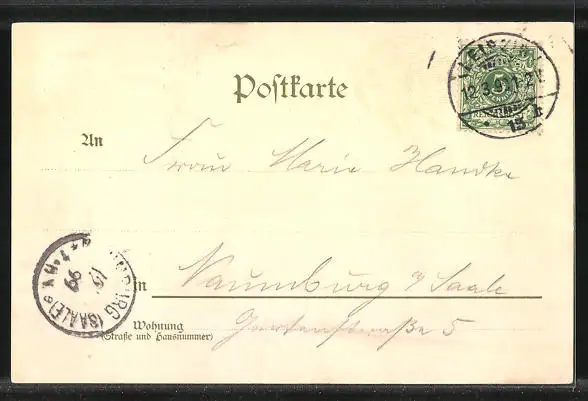 Postkarte
LEIPZIG
5
12.3.9
1-2
13 h
An
Frau Marie Handke
NAUMBURG (SAALE)
99
in Naumburg a/Saale
Wohnung
(Straße und Hausnummer)
Gartenstraße 5